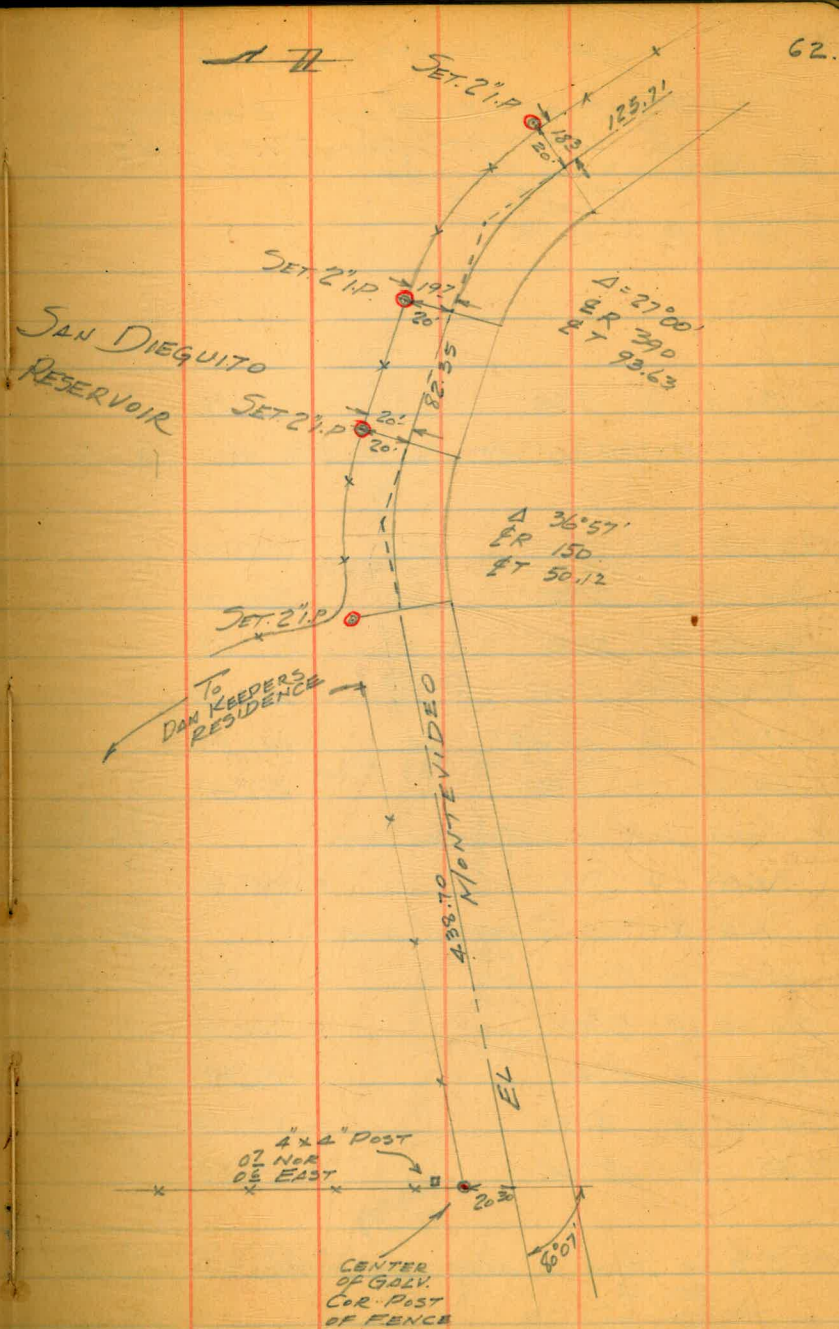 62.
SET. 2" I.P
183
20'
125.71
SET. 2" I.P.
197
20'
Δ = 27°00'
℄ R 390
℄ T 93.63
SAN DIEGUITO
RESERVOIR
82.35
SET. 2" I.P
20'
20'
Δ 36°57'
℄R 150
℄T 50.12
SET. 2" I.P
TO
DAM KEEPERS
RESIDENCE
438.70
EL MONTEVIDEO
4" x 4" POST
NOR
EAST
20
80°07'
CENTER
OF GALV.
COR. POST
OF FENCE